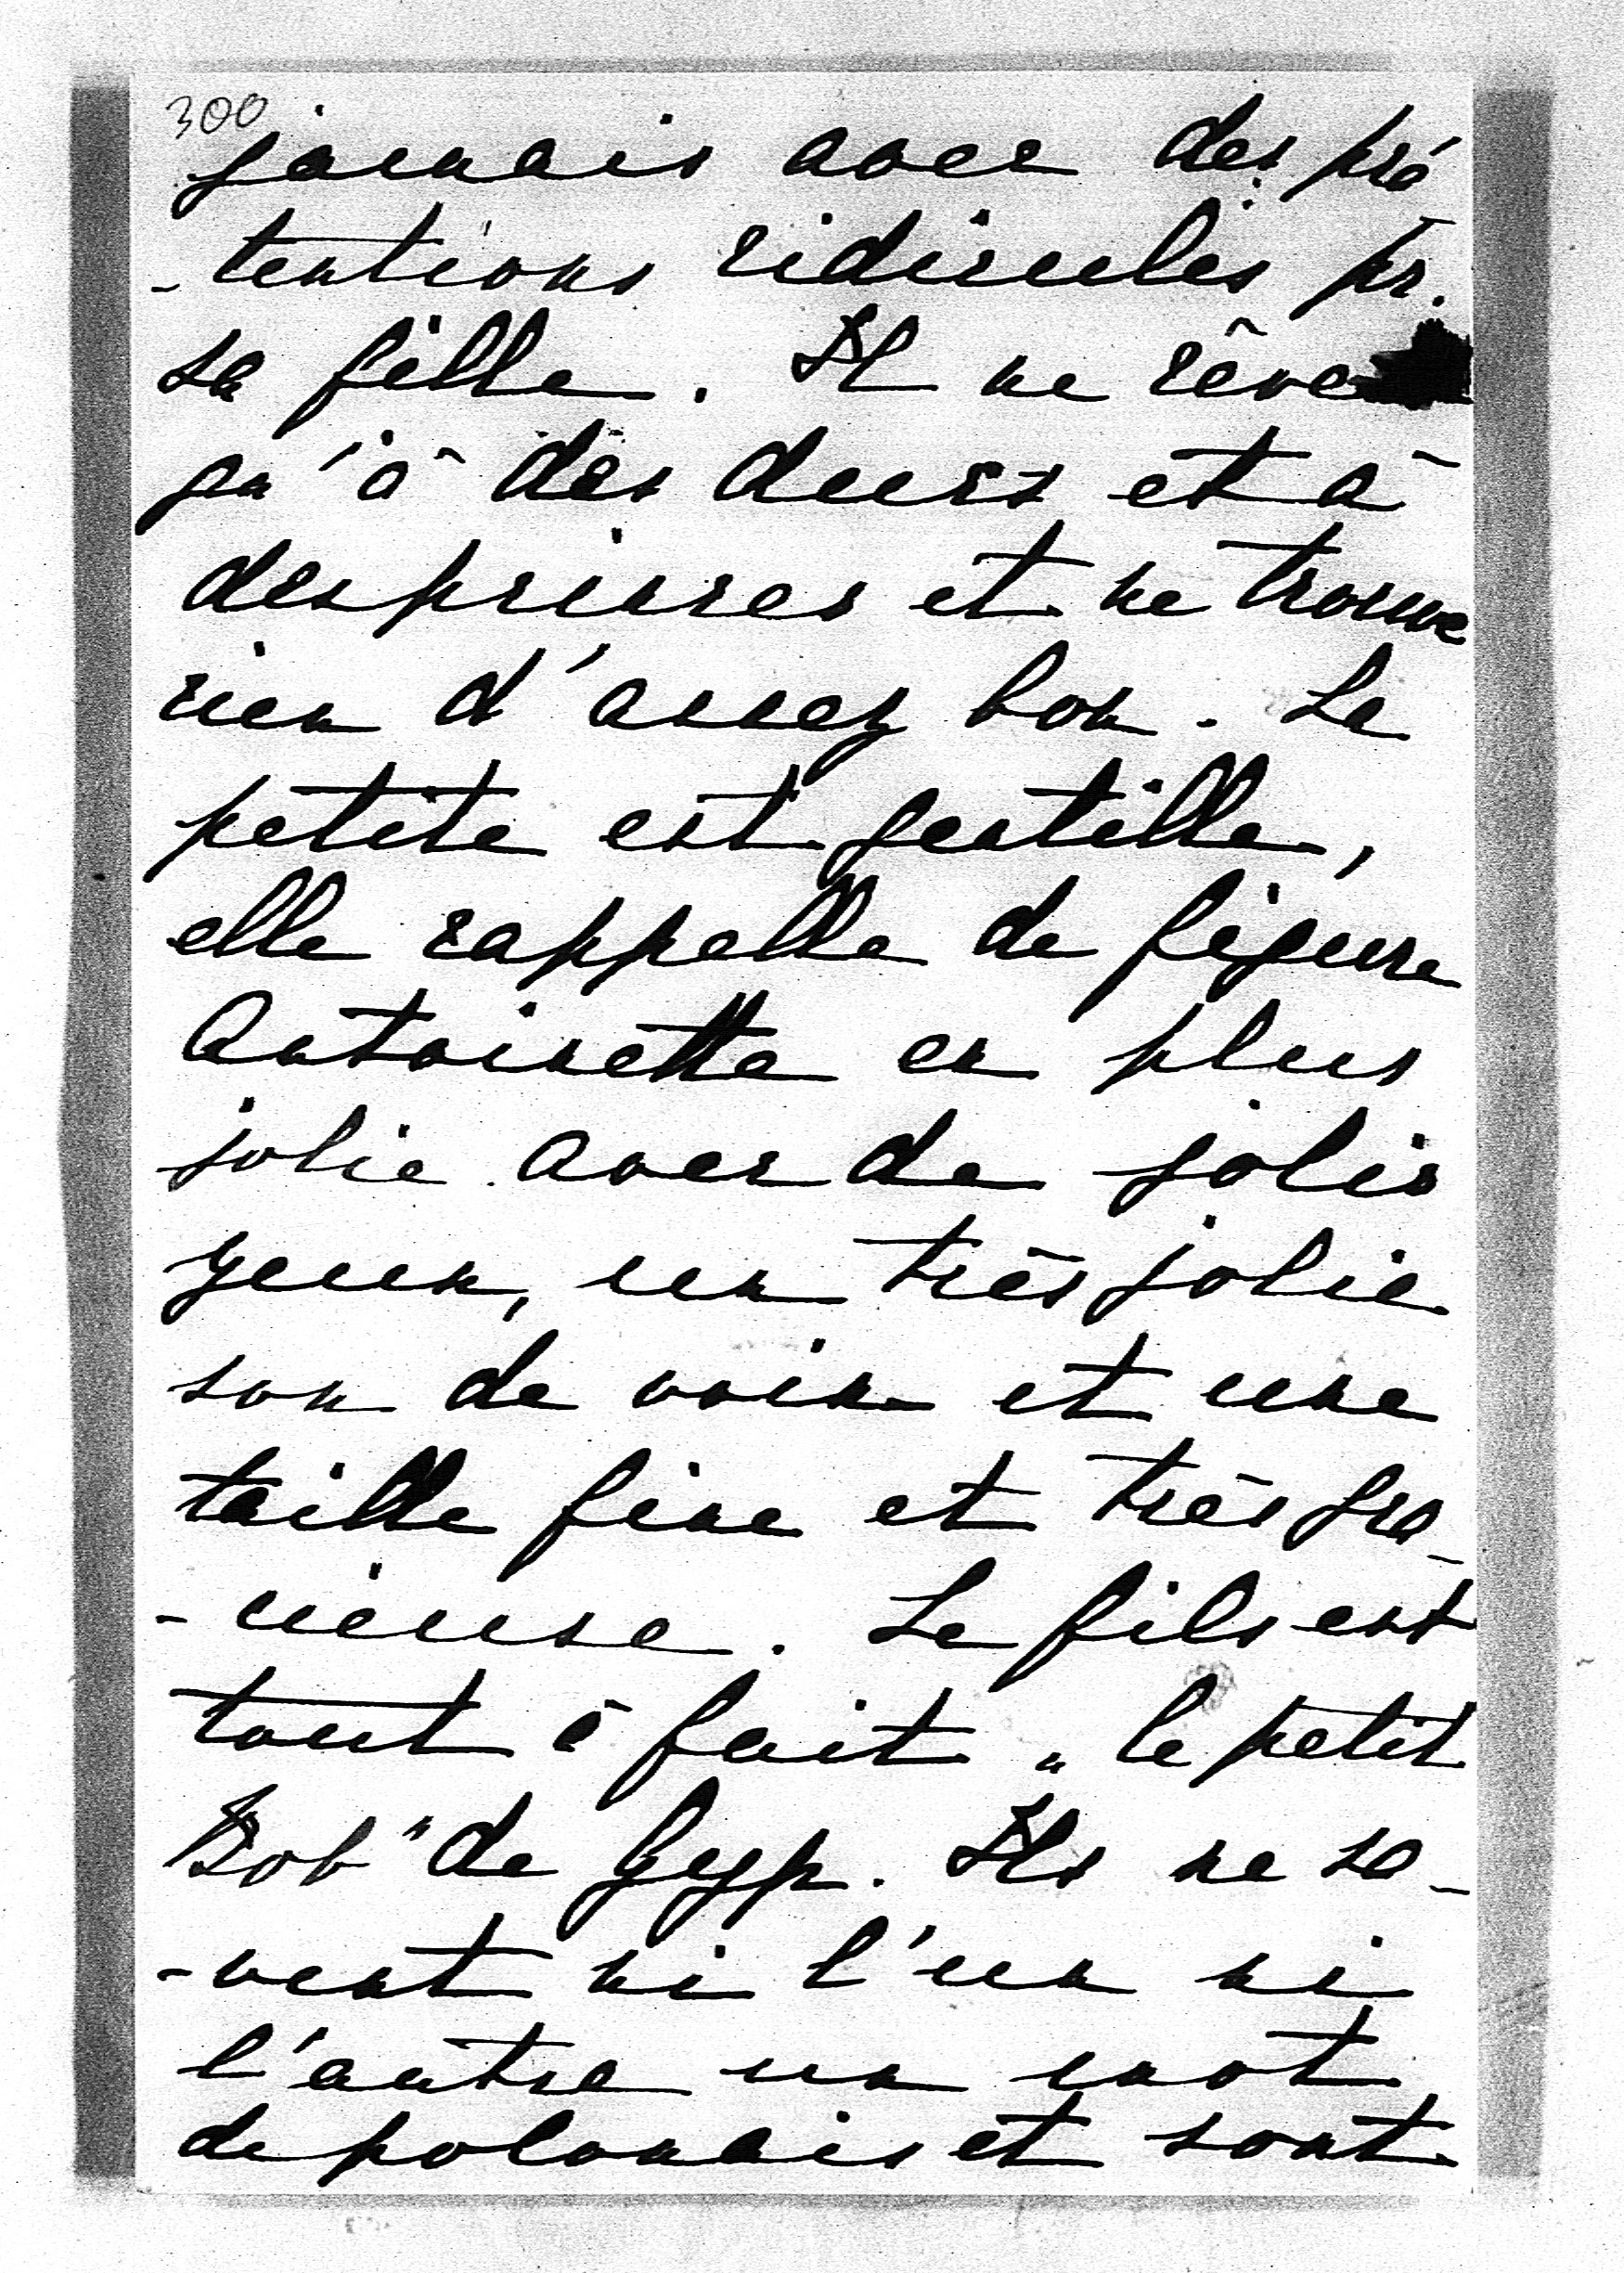 300
jamais avec des pré
-tentions ridicules pr.
sa fille. Il ne rêve
qu'à des ducs et à
des princes et ne trouve
rien d'assez bon. La
petite est gentille,
elle rappelle de figure
Antoinette en plus
jolie avec de jolis
yeux, un très jolie
son de voix et une
taille fine et très gra-
-cieuse. Le fils est
tout à fait „le petit
Bob" de Gyp. Ils ne sa-
-vent ni l'un ni
l'autre un mot
de polonais et sont